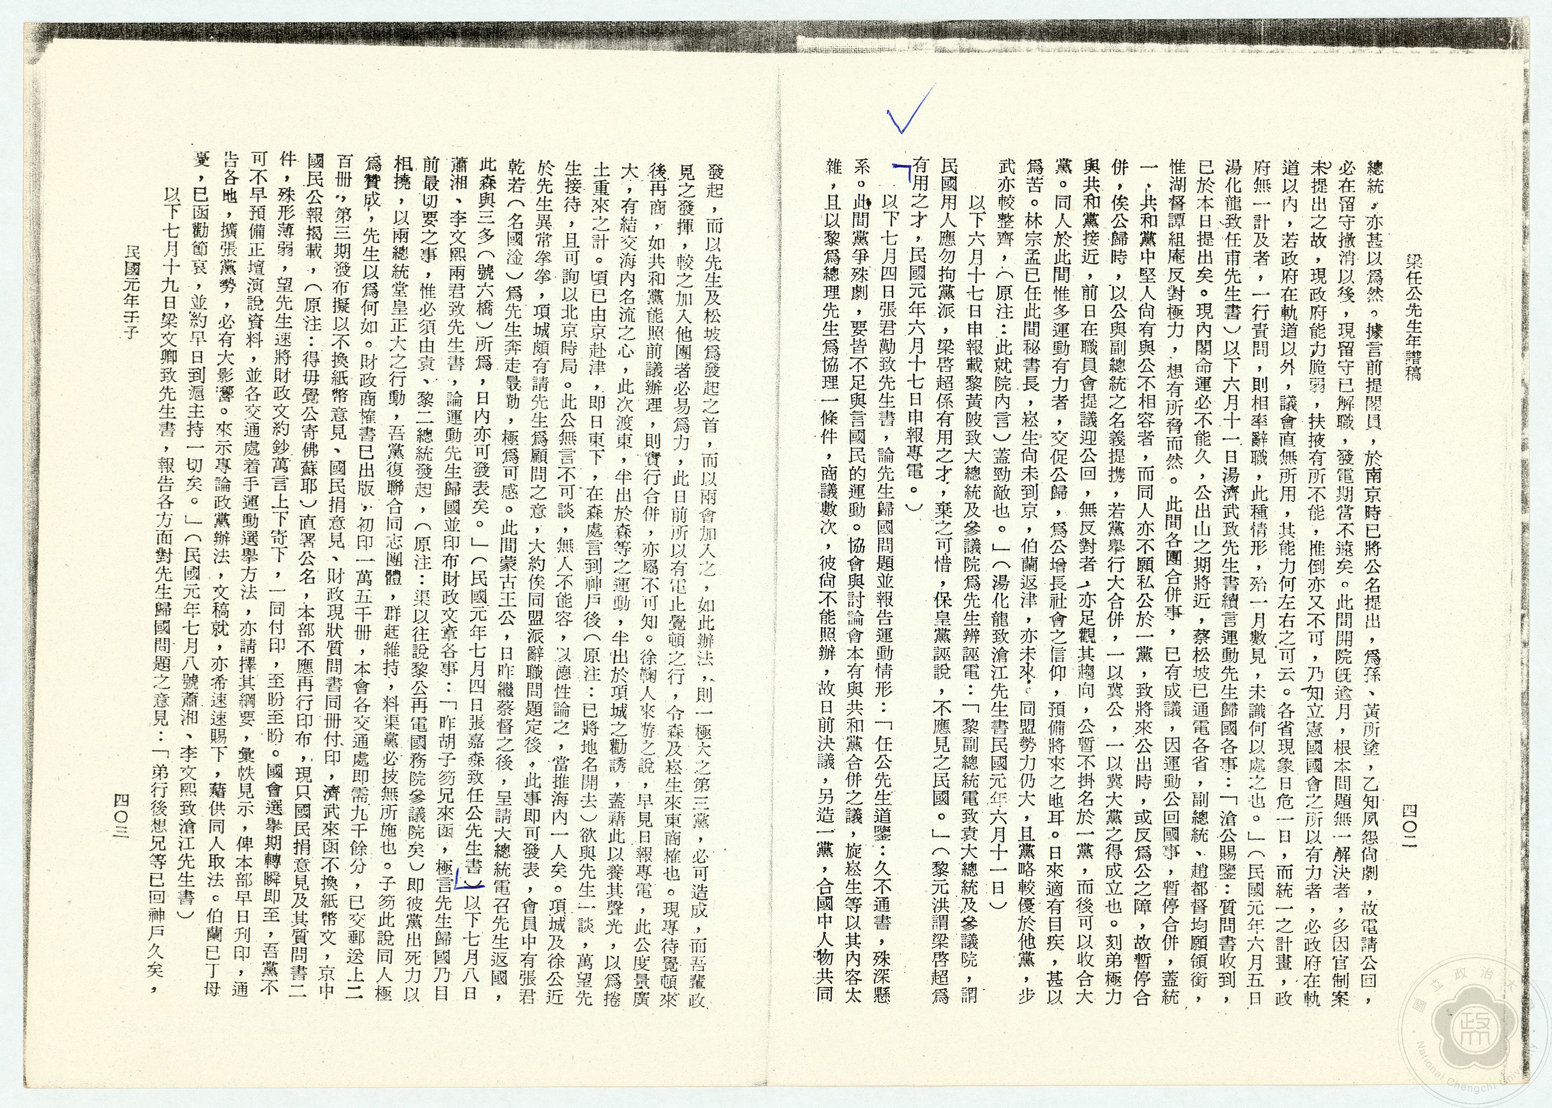 梁任公先生年譜稿
四〇二
總統，亦甚以爲然。據言前提閣員，於南京時已將公名提出，爲孫、黃所塗，乙知夙怨尙劇，故電請公回，
必在留守撤消以後，現留守已解職，發電期當不遠矣。此間開院旣逾月，根本問題無一解決者，多因官制案
未提出之故，現政府能力脆弱，扶掖有所不能，推倒亦又不可，乃知立憲國國會之所以有力者，必政府在軌
道以內，若政府在軌道以外，議會直無所用，其能力何左右之可云。各省現象日危一日，而統一之計畫，政
府無一計及者，一行責問，則相率辭職，此種情形，殆一月數見，未識何以處之也。」（民國元年六月五日
湯化龍致任甫先生書）以下六月十一日湯濟武致先生書續言運動先生歸國各事：「滄公賜鑒：質問書收到，
已於本日提出矣。現內閣命運必不能久，公出山之期將近，蔡松坡已通電各省，副總統、趙都督均願領銜，
惟湖督譚組庵反對極力，想有所脅而然。此間各團合併事，已有成議，因運動公回國事，暫停合併，蓋統
一、共和黨中堅人尙有與公不相容者，而同人亦不願私公於一黨，致將來公出時，或反爲公之障，故暫停合
併，俟公歸時，以公與副總統之名義提携，若黨舉行大合併，一以冀公，一以冀大黨之得成立也。刻弟極力
與共和黨接近，前日在職員會提議迎公回，無反對者，亦足觀其趨向，公暫不掛名於一黨，而後可以收合大
黨。同人於此間惟多運動有力者，交促公歸，爲公增長社會之信仰，預備將來之地耳。日來適有目疾，甚以
爲苦。林宗孟已任此間秘書長，崧生尙未到京，伯蘭返津，亦未來。同盟勢力仍大，且黨略較優於他黨，步
武亦較整齊，（原注：此就院內言）蓋勁敵也。」（湯化龍致滄江先生書民國元年六月十一日）
以下六月十七日申報載黎黃陂致大總統及參議院爲先生辨誣電：「黎副總統電致袁大總統及參議院，謂
民國用人應勿拘黨派，梁啓超係有用之才，棄之可惜，保皇黨誣說，不應見之民國。」（黎元洪謂梁啓超爲
有用之才，民國元年六月十七日申報專電。）
以下七月四日張君勱致先生書，論先生歸國問題並報告運動情形：「任公先生道鑒：久不通書，殊深懸
系。此間黨爭殊劇，要皆不足與言國民的運動。協會與討論會本有與共和黨合併之議，旋崧生等以其內容太
雜，且以黎爲總理先生爲協理一條件，商議數次，彼尙不能照辦，故日前決議，另造一黨，合國中人物共同
發起，而以先生及松坡爲發起之首，而以兩會加入之，如此辦法，則一極大之第三黨，必可造成，而吾輩政
見之發揮，較之加入他團者必易爲力，此日前所以有電止覺頓之行，令森及崧生來東商榷也。現專待覺頓來
後再商，如共和黨能照前議辦理，則實行合併，亦屬不可知。徐鞠人來游之說，早見日報專電，此公度量廣
大，有結交海內名流之心，此次渡東，半出於森等之運動，半出於項城之勸誘，蓋藉此以養其聲光，以爲捲
土重來之計。頃已由京赴津，即日東下，在森處言到神戶後（原注：已將地名開去）欲與先生一談，萬望先
生接待，且可詢以北京時局。此公無言不可談，無人不能容，以德性論之，當推海內一人矣。項城及徐公近
於先生異常拳拳，項城頗有請先生爲顧問之意，大約俟同盟派辭職問題定後，此事即可發表，會員中有張君
乾若（名國淦）爲先生奔走最勤，極爲可感。此間蒙古王公，日昨繼蔡督之後，呈請大總統電召先生返國，
此森與三多（號六橋）所爲，日內亦可發表矣。」（民國元年七月四日張嘉森致任公先生書）以下七月八日
蕭湘、李文熙兩君致先生書，論運動先生歸國並印布財政文章各事：「昨胡子笏兄來函，極言先生歸國乃目
前最切要之事，惟必須由袁、黎二總統發起，（原注：渠以往說黎公再電國務院參議院矣）即彼黨出死力以
相撓，以兩總統堂皇正大之行動，吾黨復聯合同志團體，群起維持，料渠黨必技無所施也。子笏此說同人極
爲贊成，先生以爲何如。財政商榷書已出版，初印一萬五千册，本會各交通處即需九千餘分，已交郵送上二
百册，第三期發布擬以不換紙幣意見、國民捐意見、財政現狀質問書同册付印，濟武來函不換紙幣文，京中
國民公報揭載，（原注：得毋覺公寄佛蘇耶）直署公名，本部不應再行印布，現只國民捐意見及其質問書二
件，殊形薄弱，望先生速將財政文約鈔萬言上下寄下，一同付印，至盼至盼。國會選舉期轉瞬即至，吾黨不
可不早預備正壇演說資料，並各交通處着手運動選舉方法，亦請擇其綱要，彙帙見示，俾本部早日刊印，通
告各地，擴張黨勢，必有大影響。來示專論政黨辦法，文稿就，亦希速速賜下，藉供同人取法。伯蘭已丁母
憂，已函勸節哀，並約早日到滬主持一切矣。」（民國元年七月八號蕭湘、李文熙致滄江先生書）
以下七月十九日梁文卿致先生書，報告各方面對先生歸國問題之意見：「弟行後想兄等已回神戶久矣，
民國元年壬子
四〇三
國立政治大學
National Chengchi University